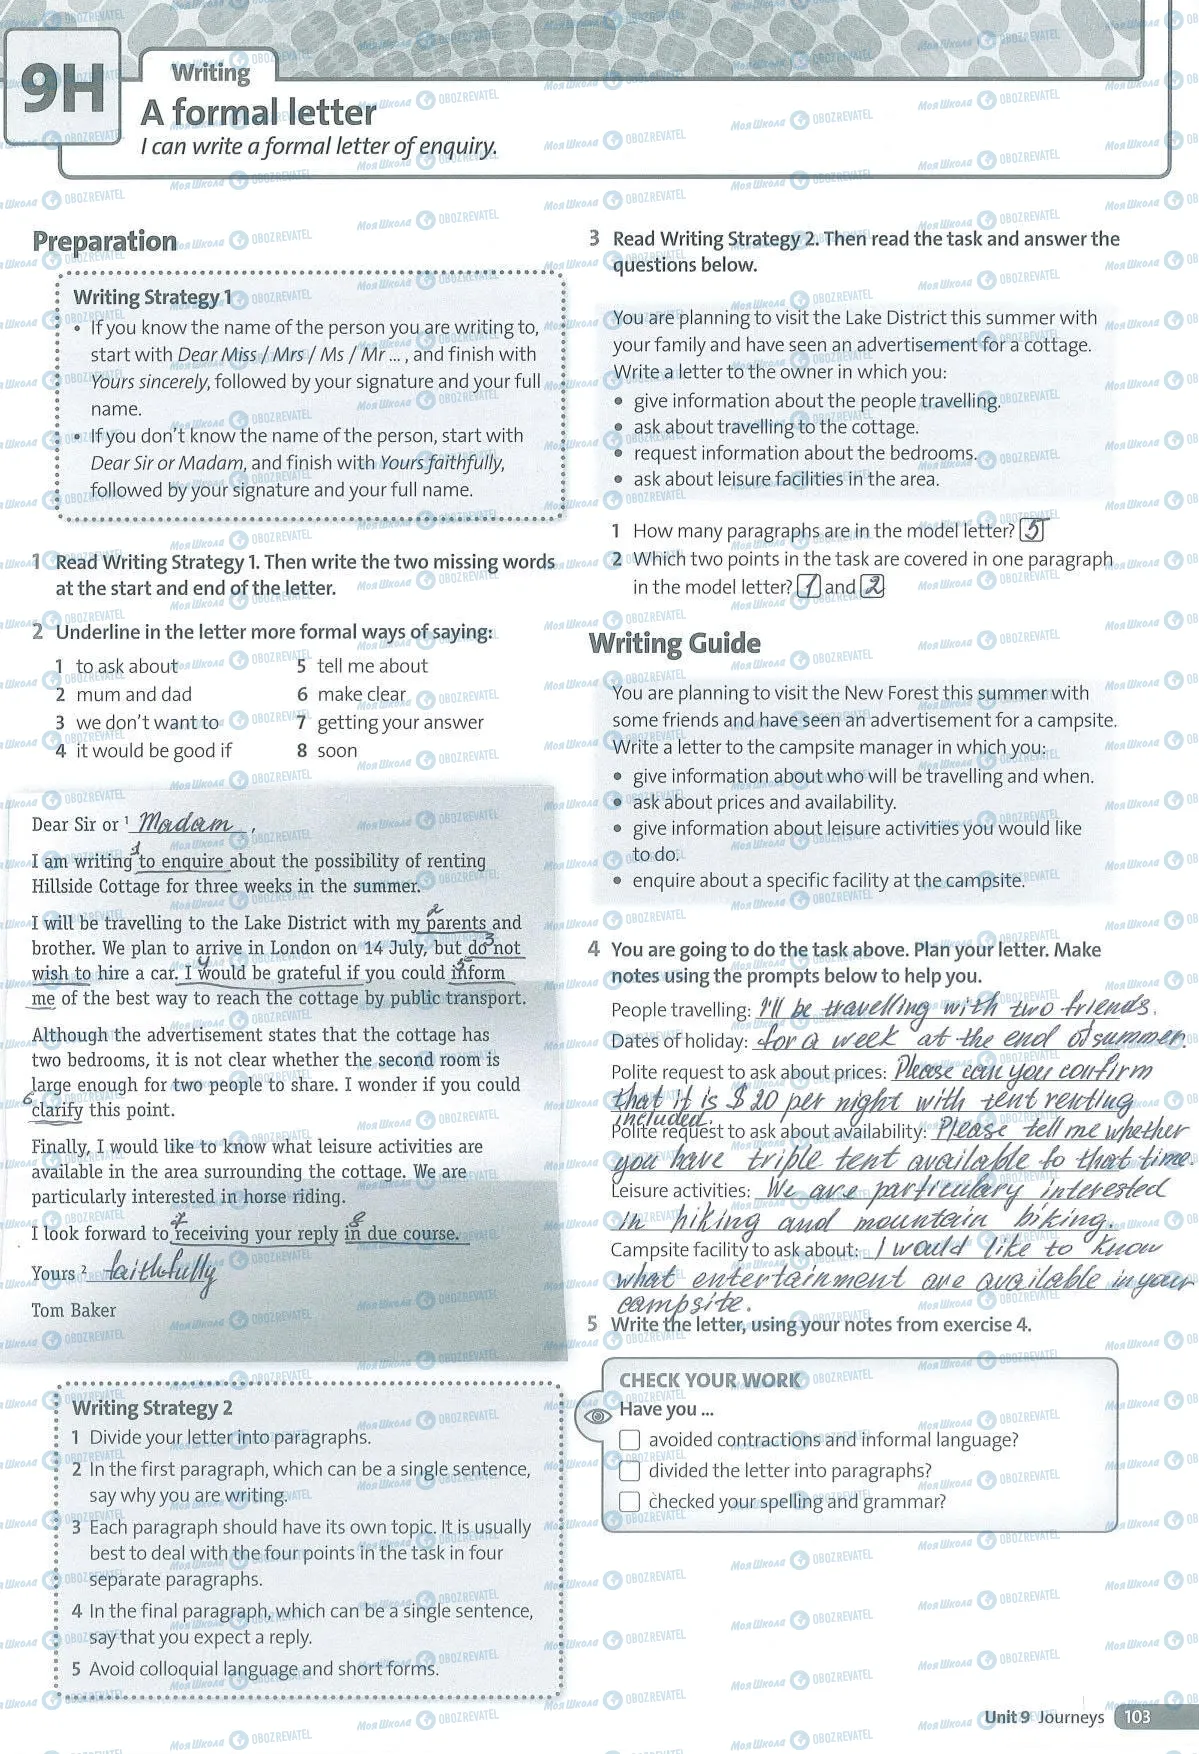 9H
Writing
A formal letter
I can write a formal letter of enquiry.
Preparation
Writing Strategy 1
• If you know the name of the person you are writing to,
start with Dear Miss / Mrs / Ms / Mr ... , and finish with
Yours sincerely, followed by your signature and your full
name.
• If you don't know the name of the person, start with
Dear Sir or Madam, and finish with Yours faithfully,
followed by your signature and your full name.
1 Read Writing Strategy 1. Then write the two missing words
at the start and end of the letter.
2 Underline in the letter more formal ways of saying:
1 to ask about
2 mum and dad
3 we don't want to
4 it would be good if
5 tell me about
6 make clear
7 getting your answer
8 soon
Dear Sir or 1 Madam,
1
I am writing to enquire about the possibility of renting
Hillside Cottage for three weeks in the summer.
2
I will be travelling to the Lake District with my parents and
3
brother. We plan to arrive in London on 14 July, but do not
4 5
wish to hire a car. I would be grateful if you could inform
me of the best way to reach the cottage by public transport.
Although the advertisement states that the cottage has
two bedrooms, it is not clear whether the second room is
large enough for two people to share. I wonder if you could
6
clarify this point.
Finally, I would like to know what leisure activities are
available in the area surrounding the cottage. We are
particularly interested in horse riding.
7 8
I look forward to receiving your reply in due course.
Yours 2 faithfully
Tom Baker
Writing Strategy 2
1 Divide your letter into paragraphs.
2 In the first paragraph, which can be a single sentence,
say why you are writing.
3 Each paragraph should have its own topic. It is usually
best to deal with the four points in the task in four
separate paragraphs.
4 In the final paragraph, which can be a single sentence,
say that you expect a reply.
5 Avoid colloquial language and short forms.
3 Read Writing Strategy 2. Then read the task and answer the
questions below.
You are planning to visit the Lake District this summer with
your family and have seen an advertisement for a cottage.
Write a letter to the owner in which you:
• give information about the people travelling.
• ask about travelling to the cottage.
• request information about the bedrooms.
• ask about leisure facilities in the area.
1 How many paragraphs are in the model letter? 5
2 Which two points in the task are covered in one paragraph
in the model letter? 1 and 2
Writing Guide
You are planning to visit the New Forest this summer with
some friends and have seen an advertisement for a campsite.
Write a letter to the campsite manager in which you:
• give information about who will be travelling and when.
• ask about prices and availability.
• give information about leisure activities you would like
to do.
• enquire about a specific facility at the campsite.
4 You are going to do the task above. Plan your letter. Make
notes using the prompts below to help you.
People travelling: I'll be travelling with two friends.
Dates of holiday: for a week at the end of summer.
Polite request to ask about prices: Please can you confirm
that it is $ 20 per night with tent renting
included.
Polite request to ask about availability: Please tell me whether
you have triple tent available fo that time.
Leisure activities: We are particulary interested
in hiking and mountain biking.
Campsite facility to ask about: I would like to know
what entertainment are available in your
campsite.
5 Write the letter, using your notes from exercise 4.
CHECK YOUR WORK
Have you ...
avoided contractions and informal language?
divided the letter into paragraphs?
checked your spelling and grammar?
Unit 9 Journeys 103
Моя Школа OBOZREVATEL